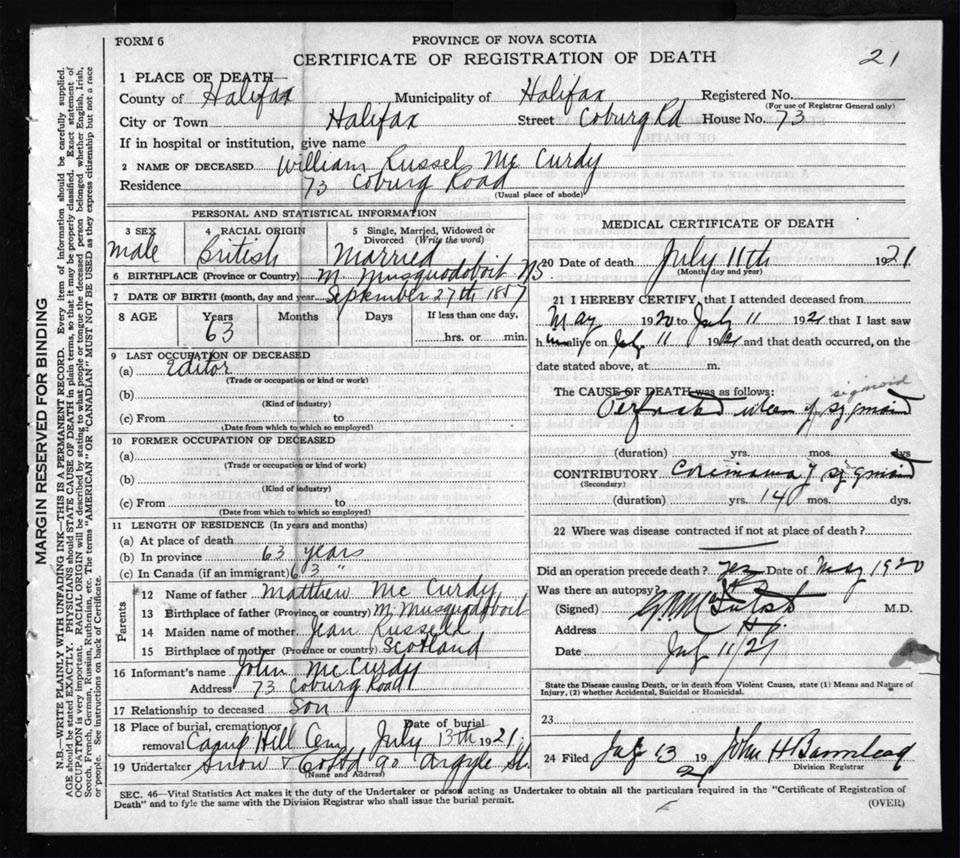 FORM 6
PROVINCE OF NOVA SCOTIA
CERTIFICATE OF REGISTRATION OF DEATH
21
1 PLACE OF DEATH—
County of Halifax Municipality of Halifax Registered No.
(For use of Registrar General only)
City or Town Halifax Street Coburg Rd House No. 73
If in hospital or institution, give name
2 NAME OF DECEASED William Russel Mc Curdy
Residence 73 Coburg Road
(Usual place of abode)
PERSONAL AND STATISTICAL INFORMATION
3 SEX 4 RACIAL ORIGIN 5 Single, Married, Widowed or
Divorced (Write the word)
Male British Married
6 BIRTHPLACE (Province or Country) M. Musquodoboit NS
7 DATE OF BIRTH (month, day and year September 27th 1857
8 AGE Years Months Days If less than one day,
63 hrs. or min.
9 LAST OCCUPATION OF DECEASED
(a) Editor
(Trade or occupation or kind of work)
(b)
(Kind of industry)
(c) From to
(Date from which to which so employed)
10 FORMER OCCUPATION OF DECEASED
(a)
(Trade or occupation or kind of work)
(b)
(Kind of industry)
(c) From to
(Date from which to which so employed)
11 LENGTH OF RESIDENCE (In years and months)
(a) At place of death
(b) In province 63 years
(c) In Canada (if an immigrant) 63 "
Parents
12 Name of father Matthew Mc Curdy
13 Birthplace of father (Province or country) M. Musquodoboit
14 Maiden name of mother Jean Russell
15 Birthplace of mother (Province or country) Scotland
16 Informant's name John McCurdy
Address 73 Coburg Road
17 Relationship to deceased Son
18 Place of burial, cremation or Date of burial
removal Camp Hill Cem July 13th 1921
19 Undertaker Snow & Co Ltd 90 Argyle St.
(Name and Address)
MEDICAL CERTIFICATE OF DEATH
20 Date of death July 11th 1921
(Month, day and year)
21 I HEREBY CERTIFY, that I attended deceased from
May 1920 to July 11 1921 that I last saw
him alive on July 11 1921 and that death occurred, on the
date stated above, at m.
The CAUSE OF DEATH was as follows:
sigmoid
ulcer of sigmoid
(duration) yrs. mos. dys
CONTRIBUTORY of sigmoid
(Secondary)
(duration) yrs. 14 mos. dys.
22 Where was disease contracted if not at place of death?
Did an operation precede death? Yes Date of May 1920
Was there an autopsy? No
(Signed) M.D.
Address
Date July 11/21
State the Disease causing Death, or in death from Violent Causes, state (1) Means and Nature of
Injury, (2) whether Accidental, Suicidal or Homicidal.
23
24 Filed July 13 1921 John H Barnstead
Division Registrar
SEC. 46—Vital Statistics Act makes it the duty of the Undertaker or person acting as Undertaker to obtain all the particulars required in the "Certificate of Registration of
Death" and to fyle the same with the Division Registrar who shall issue the burial permit.
(OVER)
MARGIN RESERVED FOR BINDING
N.B.—WRITE PLAINLY WITH UNFADING INK—THIS IS A PERMANENT RECORD. Every item of information should be carefully supplied.
AGE should be stated EXACTLY. PHYSICIANS should STATE CAUSE OF DEATH in plain terms, so that it may be properly classified. Exact statement of
OCCUPATION is very important. RACIAL ORIGIN will be described by stating to what people or tongue the deceased person belonged whether English, Irish,
Scotch, French, German, Russian, Ruthenian, etc. The terms "AMERICAN" OR "CANADIAN" MUST NOT BE USED as they express citizenship but not a race
or people. See instructions on back of Certificate.